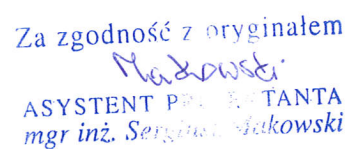 Za zgodność z oryginałem
Makowski
ASYSTENT
mgr inż. Makowski